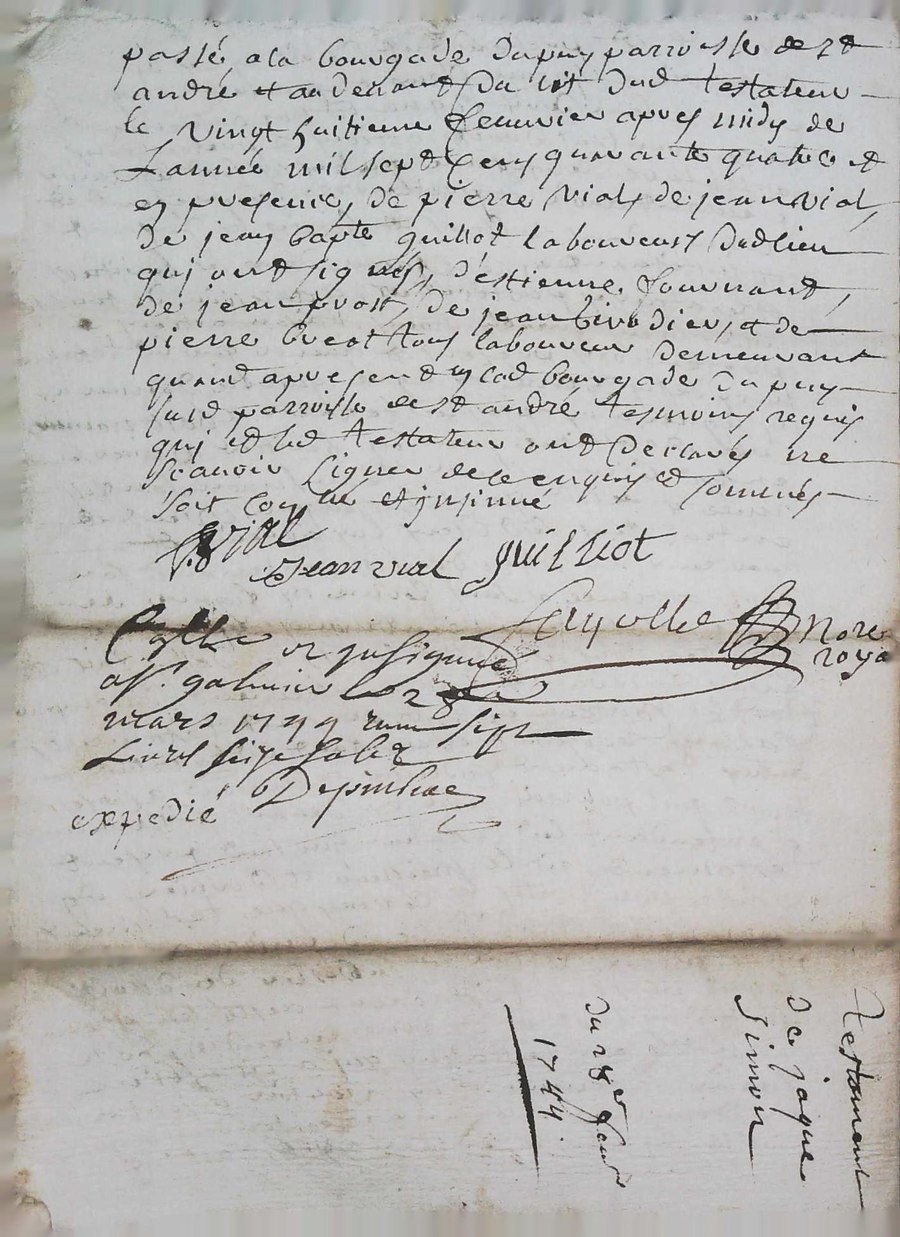 passé a la bourgade dupuy parroisse de st
andré et au devant du lit dud testateur
le vingt huitieme feuvrier apres midy de
l'année mil sept cens quarante quatre et
en presences de pierre vial, de jean vial,
de jean bapte guillot laboureurs dud lieu
qui ont signés, d'estienne fournand,
de jean prost, de jean birodier, et de
pierre breat tous laboureur demeurant
quand apresent en lad bourgade dupuy
susd parroisse de st andré tesmoins requis
qui et led testateur ont declarés ne
scavoir signer de ce enquis et sommés
soit conlle et insinué
P. vial
Jean vial guilliot
fayolle Nore
royal
Conlle et insigné
a St. galmier le 28
mars 1744 receu sept
livres seize sols
Depinhac
expedié
Testament
de jaque
Simon
du 28er feuvr
1744.